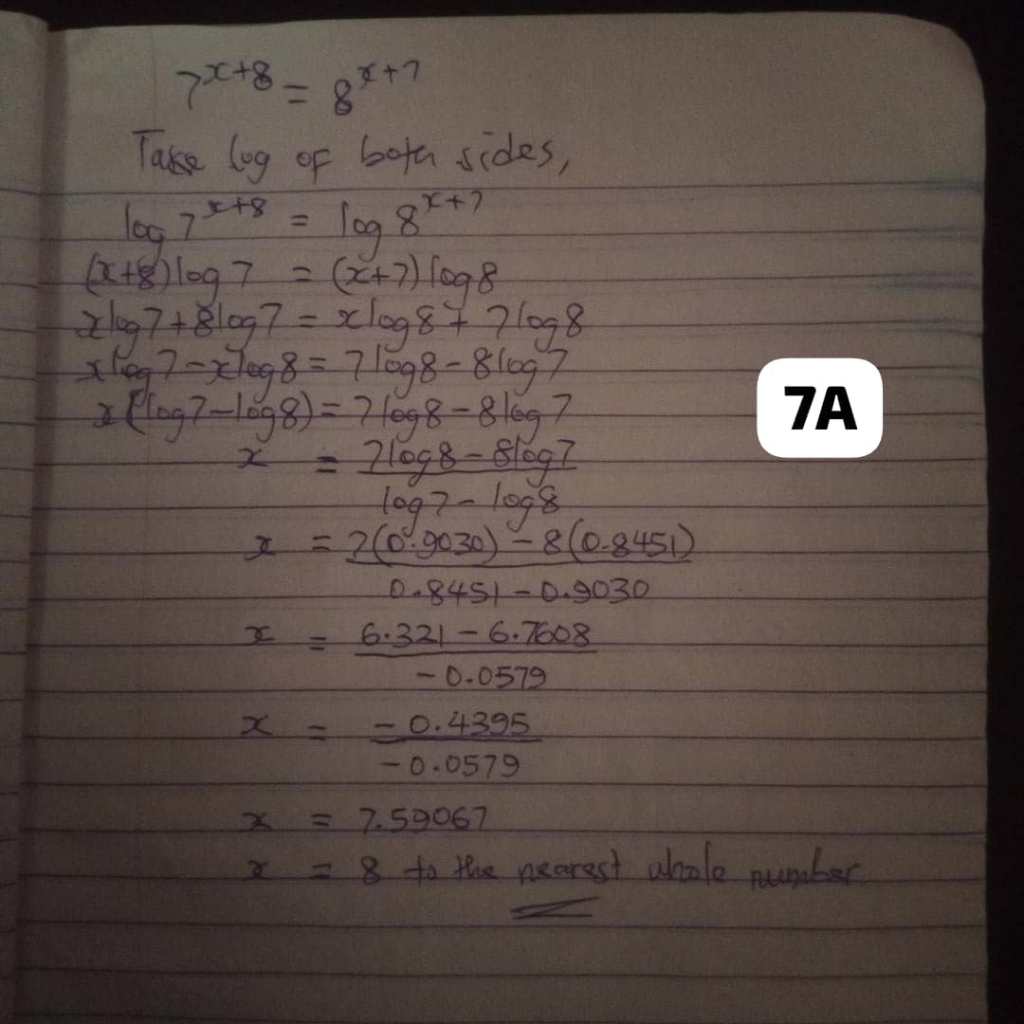 7^{x+8} = 8^{x+7}
Take log of both sides,
log 7^{x+8} = log 8^{x+7}
(x+8)log7 = (x+7)log8
xlog7+8log7 = xlog8+7log8
xlog7-xlog8 = 7log8-8log7
x(log7-log8) = 7log8-8log7
x = 7log8-8log7
log7-log8
x = 7(0.9030)-8(0.8451)
0.8451-0.9030
x = 6.321-6.7608
-0.0579
x = -0.4395
-0.0579
x = 7.59067
x = 8 to the nearest whole number
7A